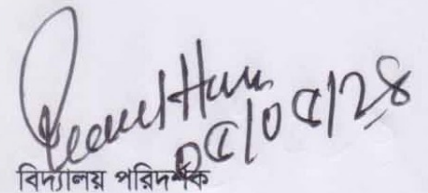 ০৫/০৫/২৪
বিদ্যালয় পরিদর্শক